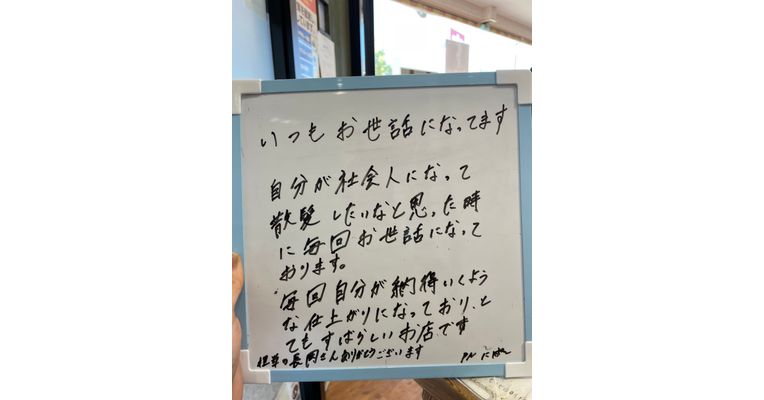 いつもお世話になってます
自分が社会人になって
散髪したいなと思った時
に毎回お世話になって
おります。
毎回自分が納得いくよう
な仕上がりになっており、と
てもすばらしいお店です
担当の長岡さんありがとうございます
PN にぼし